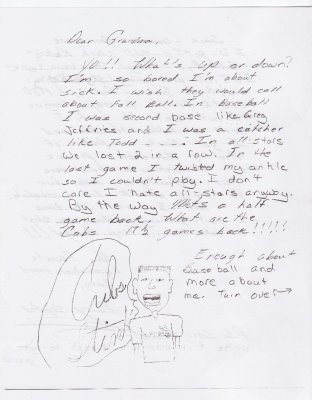 Dear Grandma,
YO!! What's up or down?
I'm so bored I'm about
sick. I wish they would call
about Fall Ball. In baseball
I was second base like Greg
Jeffries and I was a catcher
like Todd ......... In all-stars
we lost 2 in a row. In the
last game I twisted my ankle
so I couldn't play. I don't
care I hate all-stars anyway.
By the way Mets a half
game back. What are the
Cubs 17½ games back!!!!!
Cubs
stink
Enough about
baseball and
more about
me. Turn over →